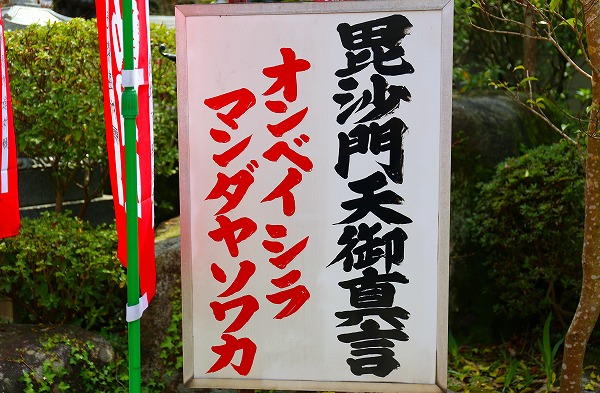 毘沙門天御真言
オンベイシラ
マンダヤソワカ